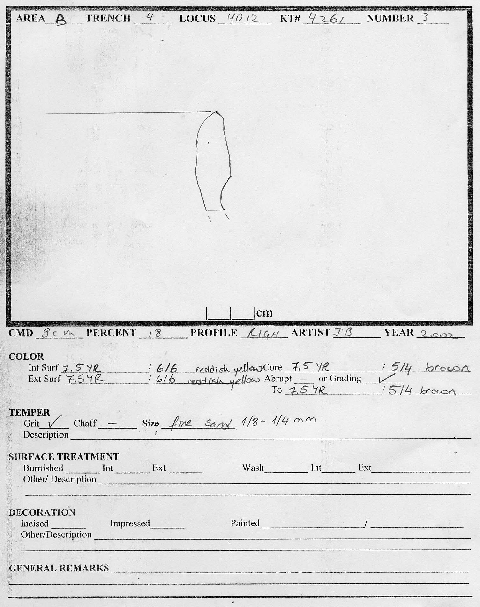 AREA B TRENCH 4 LOCUS 4012 KT# 4261 NUMBER 3
cm
CMD 9cm PERCENT .8 PROFILE RIGH ARTIST JB YEAR 2000
COLOR
Int Surf 7.5 YR : 6/6 reddish yellow Core 7.5 YR : 5/4 brown
Ext Surf 7.5 YR : 6/6 reddish yellow Abrupt or Grading ✓
To 7.5 YR : 5/4 brown
TEMPER
Grit ✓ Chaff – Size fine sand 1/8 - 1/4 mm
Description
SURFACE TREATMENT
Burnished Int Ext Wash Int Ext
Other/ Description
DECORATION
Incised Impressed Painted /
Other/Description
GENERAL REMARKS